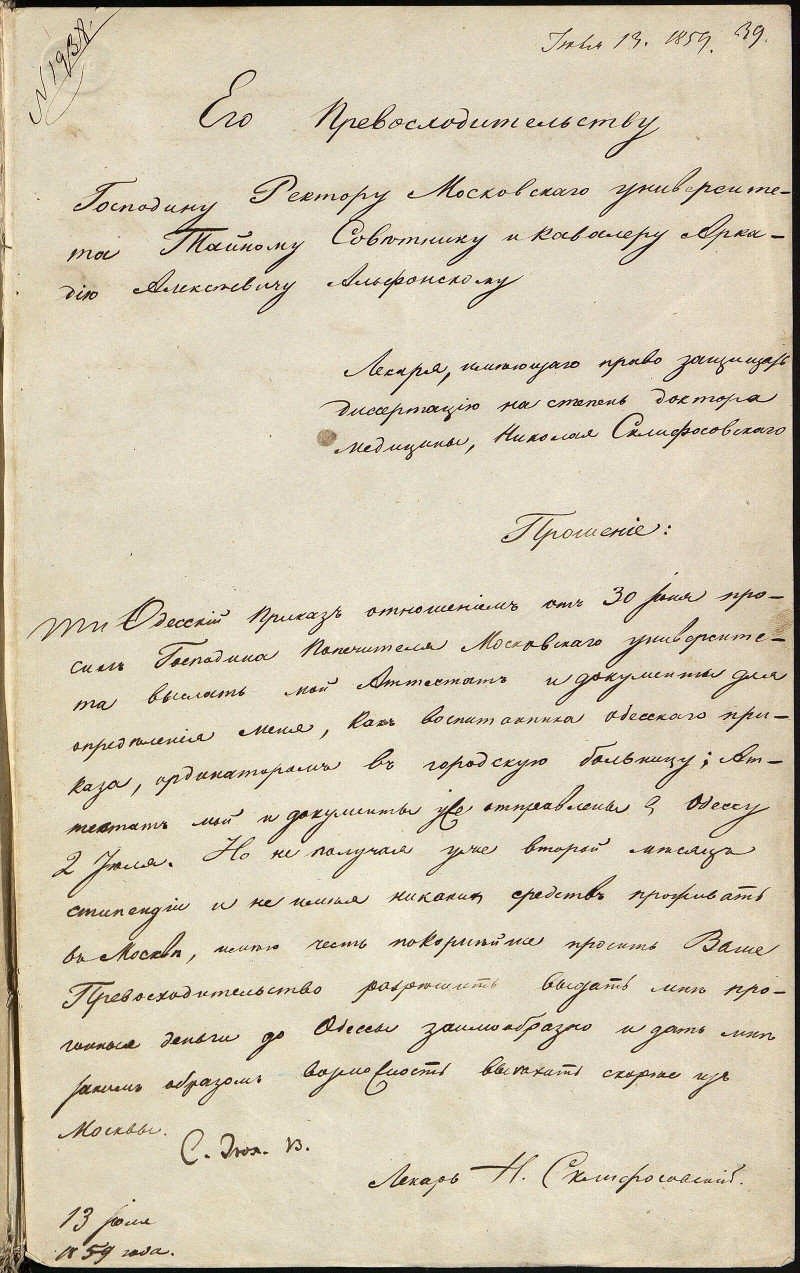 № 1938.
Іюля 13. 1859. 39.
Его Превосходительству
Господину Ректору Московскаго университе-
та Тайному Совѣтнику и Кавалеру Арка-
дію Алексѣевичу Альфонскому
Лекаря, имѣющаго право защищать
диссертацію на степень доктора
медицины, Николая Склифосовскаго
Прошеніе:
Одесскій Приказъ отношеніемъ отъ 30 Іюня про-
силъ Господина Попечителя Московскаго университе-
та выслать мой Аттестатъ и документы для
опредѣленія меня, какъ воспитанника одесскаго при-
каза, ординаторомъ въ городскую больницу; Ат-
тестатъ мой и документы уже отправлены въ Одессу
2 Іюля. Но не получая уже второй мѣсяцъ
стипендіи и не имѣя никакихъ средствъ проживать
въ Москвѣ, имѣю честь покорнѣйше просить Ваше
Превосходительство разрѣшить выдать мнѣ про-
гонныя деньги до Одессы заимообразно и дать мнѣ
такимъ образомъ возможность выѣхать скорѣе изъ
Москвы.
Лекарь Н. Склифосовскій.
13 Іюля
1859 года.